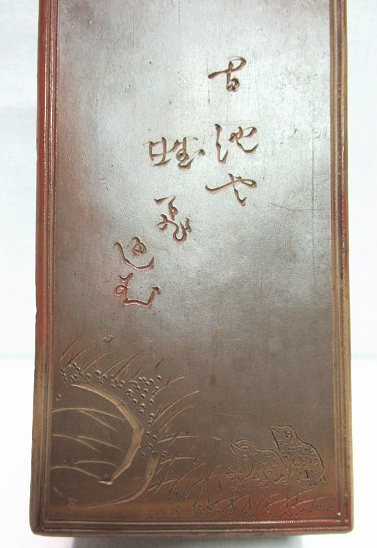 古池や
蛙飛
込む